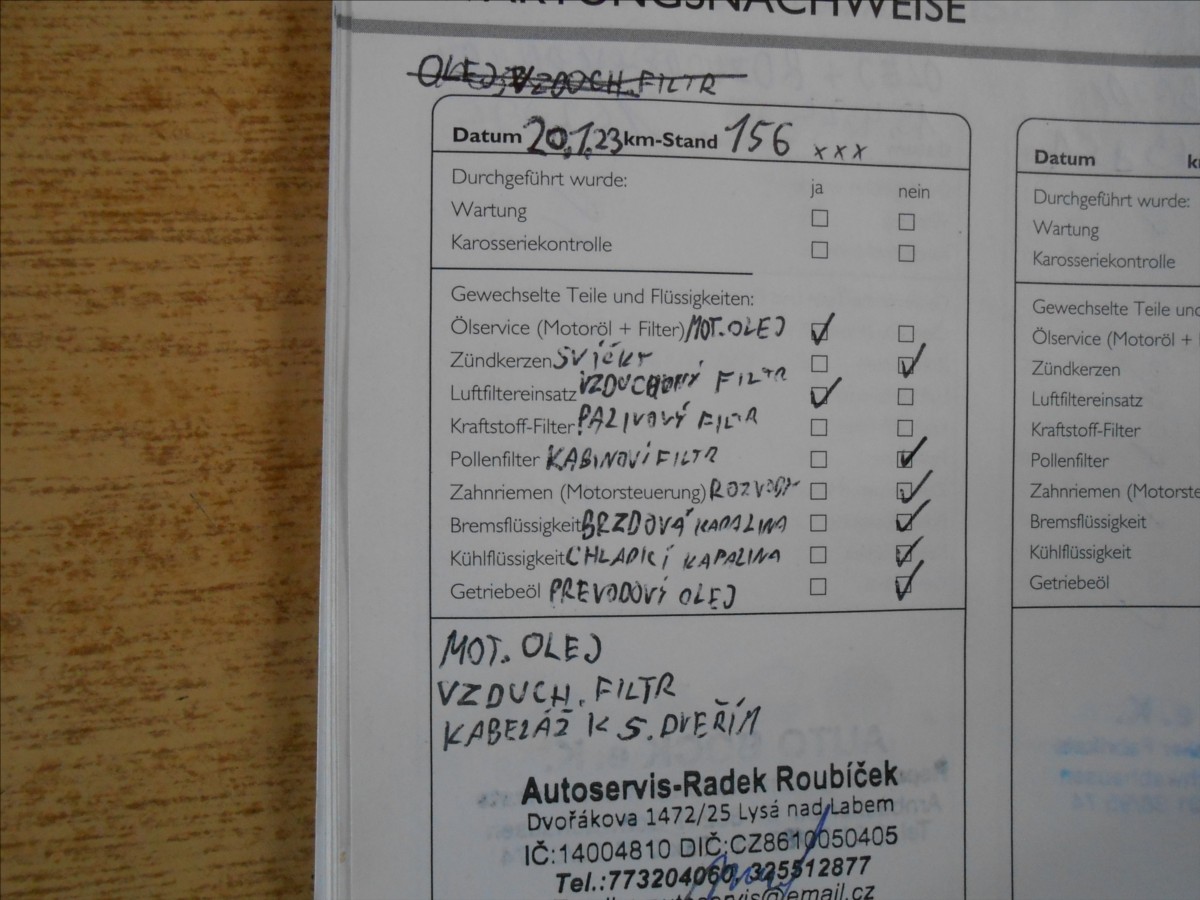 WARTUNGSNACHWEISE
OLEJ, VZDUCH. FILTR
Datum 20.1.23 km-Stand 156 xxx
Durchgeführt wurde: ja nein
Wartung
Karosseriekontrolle
Gewechselte Teile und Flüssigkeiten:
Ölservice (Motoröl + Filter) MOT. OLEJ
Zündkerzen SVÍČKY
Luftfiltereinsatz VZDUCHOVÝ FILTR
Kraftstoff-Filter PALIVOVÝ FILTR
Pollenfilter KABINOVÍ FILTR
Zahnriemen (Motorsteuerung) ROZVODY
Bremsflüssigkeit BRZDOVÁ KAPALINA
Kühlflüssigkeit CHLADICÍ KAPALINA
Getriebeöl PREVODOVÝ OLEJ
MOT. OLEJ
VZDUCH. FILTR
KABELÁŽ K 5. DVEŘÍM
Autoservis-Radek Roubíček
Dvořákova 1472/25 Lysá nad Labem
IČ:14004810 DIČ:CZ8610050405
Tel.:773204060, 325512877
autoservis@email.cz
Datum
Durchgeführt wurde:
Wartung
Karosseriekontrolle
Gewechselte Teile und
Ölservice (Motoröl +
Zündkerzen
Luftfiltereinsatz
Kraftstoff-Filter
Pollenfilter
Zahnriemen (Motorste
Bremsflüssigkeit
Kühlflüssigkeit
Getriebeöl